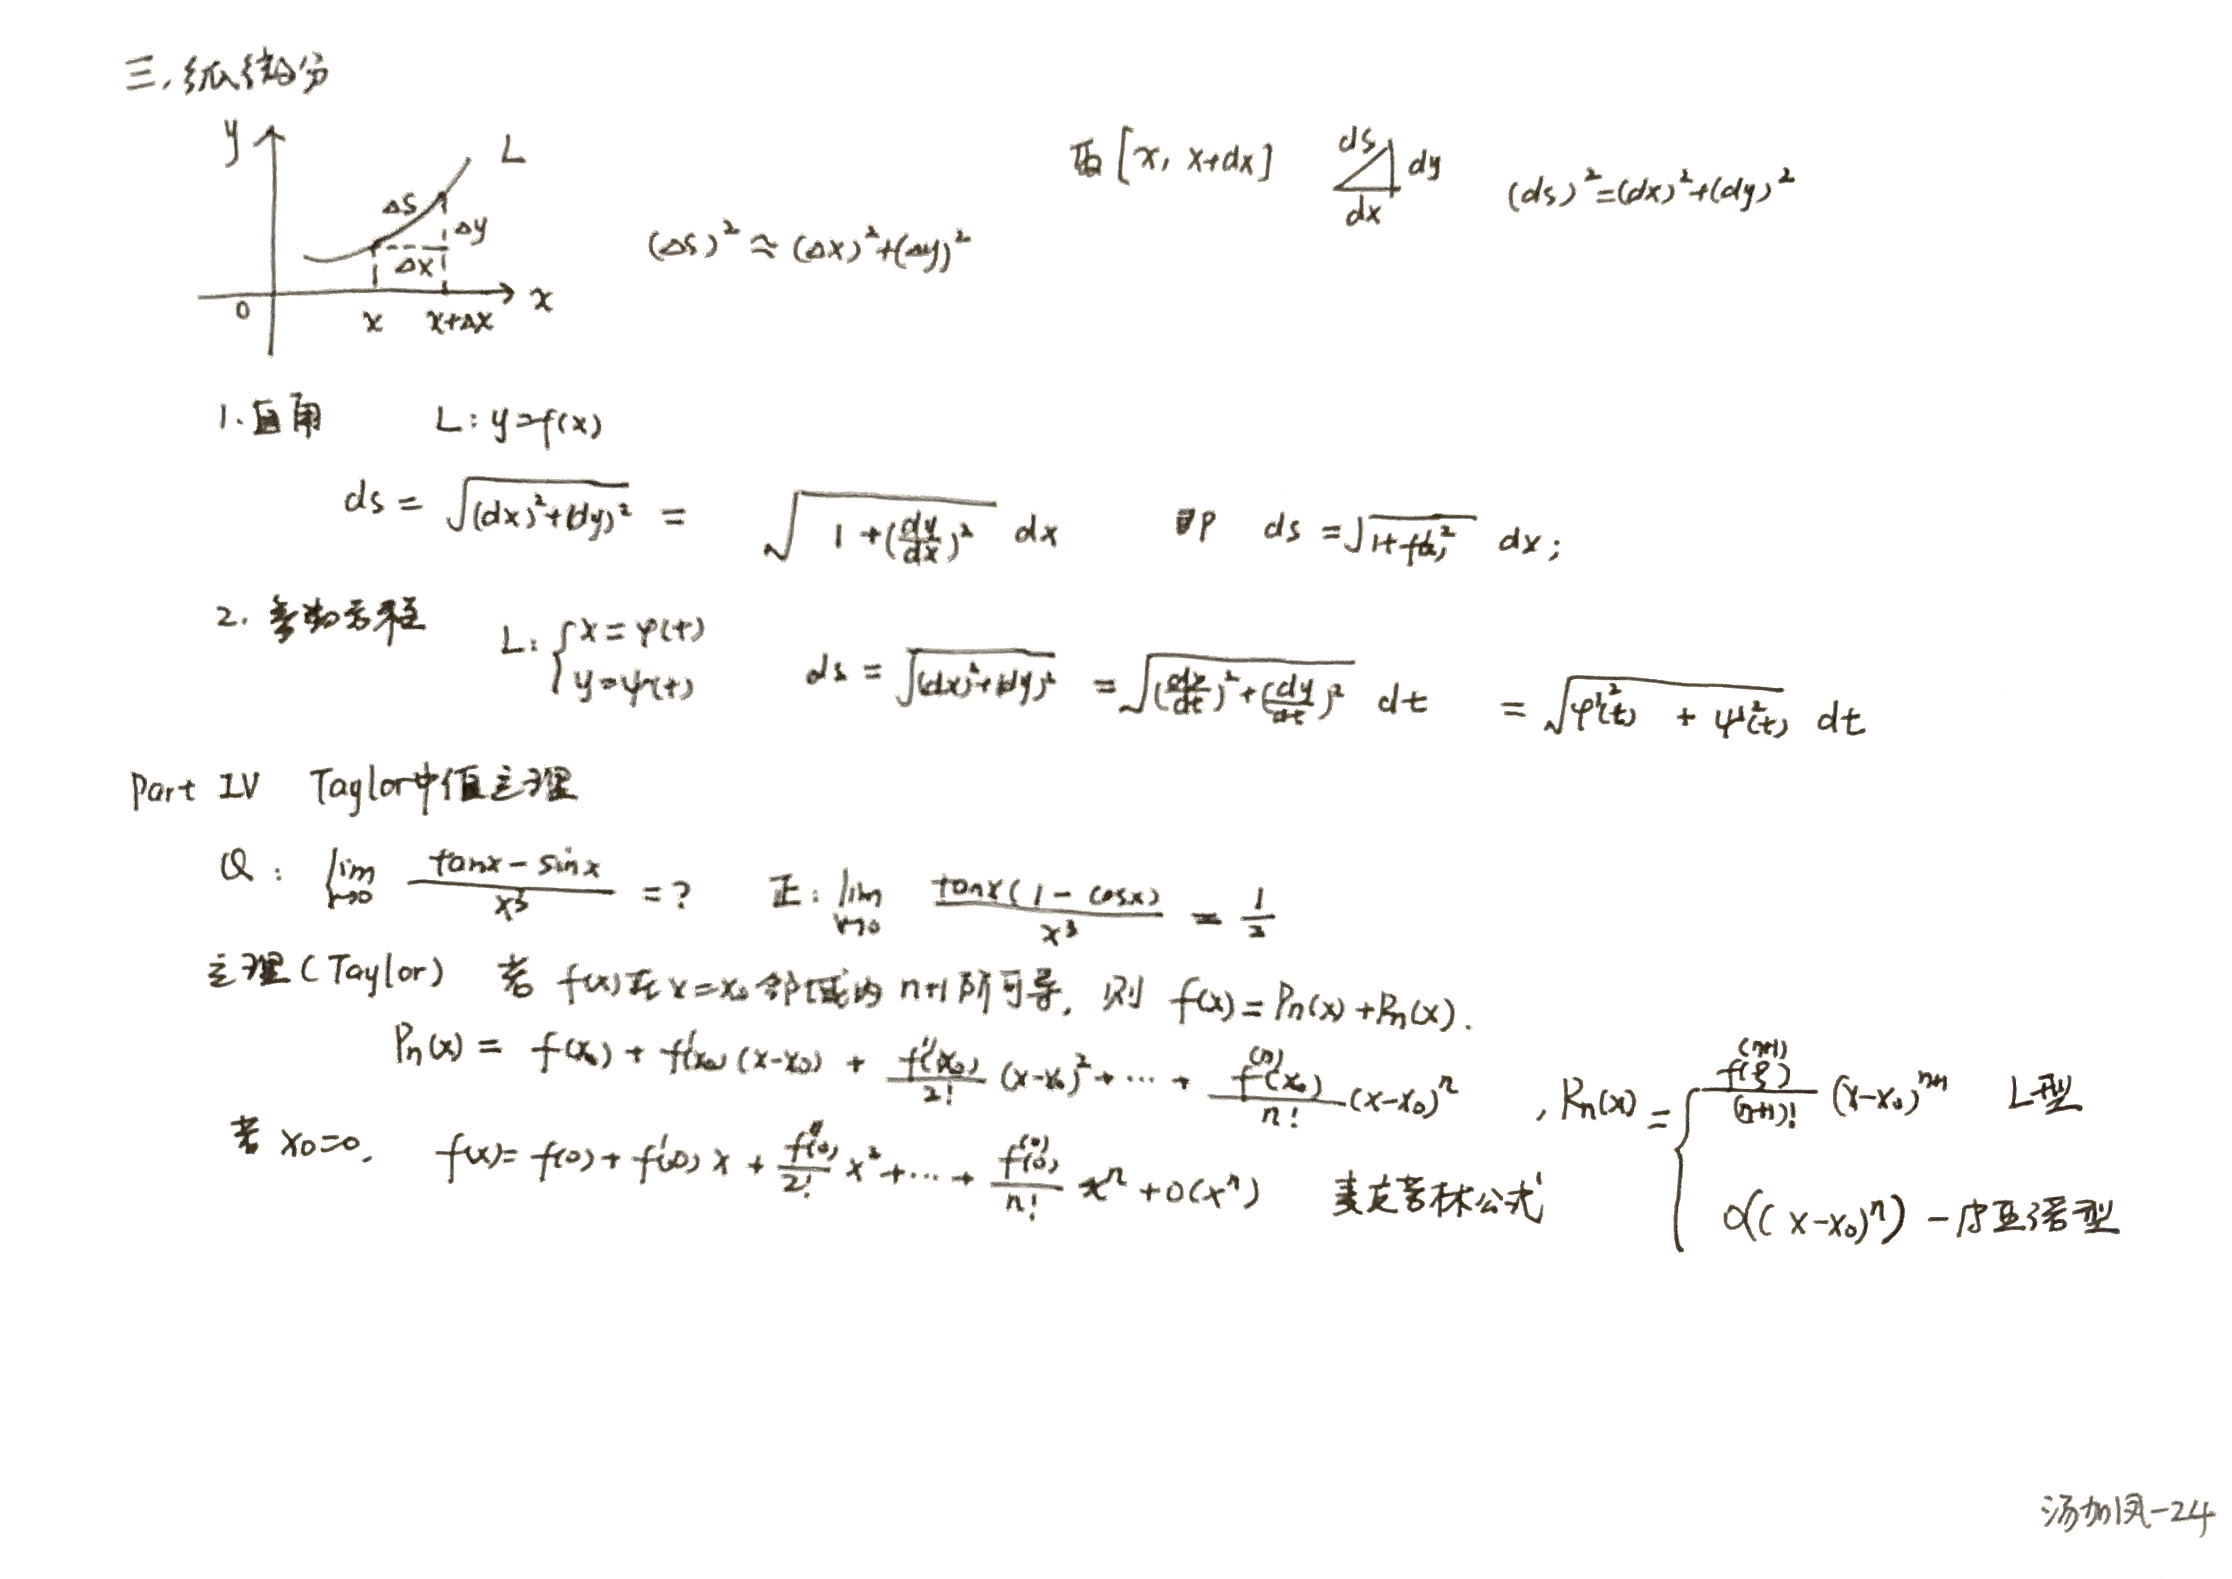 三. 弧微分
y L ΔS Δy Δx 0 x x+Δx x
(Δs)²≈(Δx)²+(Δy)²
取[x, x+dx] ds dy dx (ds)²=(dx)²+(dy)²
1. 直角 L: y=f(x)
ds = √((dx)²+(dy)²) = √(1+(dy/dx)²) dx 即 ds=√(1+f'(x)²) dx;
2. 参数方程 L: {x=φ(t) y=ψ(t) ds = √((dx)²+(dy)²) = √((dx/dt)²+(dy/dt)²) dt = √(φ'²(t) + ψ'²(t)) dt
Part IV Taylor中值定理
Q: lim x→0 (tanx-sinx)/x³ =? 正: lim x→0 tanx(1-cosx)/x³ = 1/2
定理(Taylor) 若 f(x)在x=x₀邻域内n+1阶可导, 则 f(x)=Pn(x)+Rn(x).
Pn(x) = f(x₀) + f'(x₀)(x-x₀) + f''(x₀)/2! (x-x₀)²+…+ f⁽ⁿ⁾(x₀)/n! (x-x₀)ⁿ , Rn(x) = { f⁽ⁿ⁺¹⁾(ξ)/(n+1)! (x-x₀)ⁿ⁺¹ L型
o((x-x₀)ⁿ) -皮亚诺型
若 x₀=0, f(x)= f(0)+f'(0)x + f''(0)/2! x²+…+ f⁽ⁿ⁾(0)/n! xⁿ+o(xⁿ) 麦克劳林公式
汤加凤-24